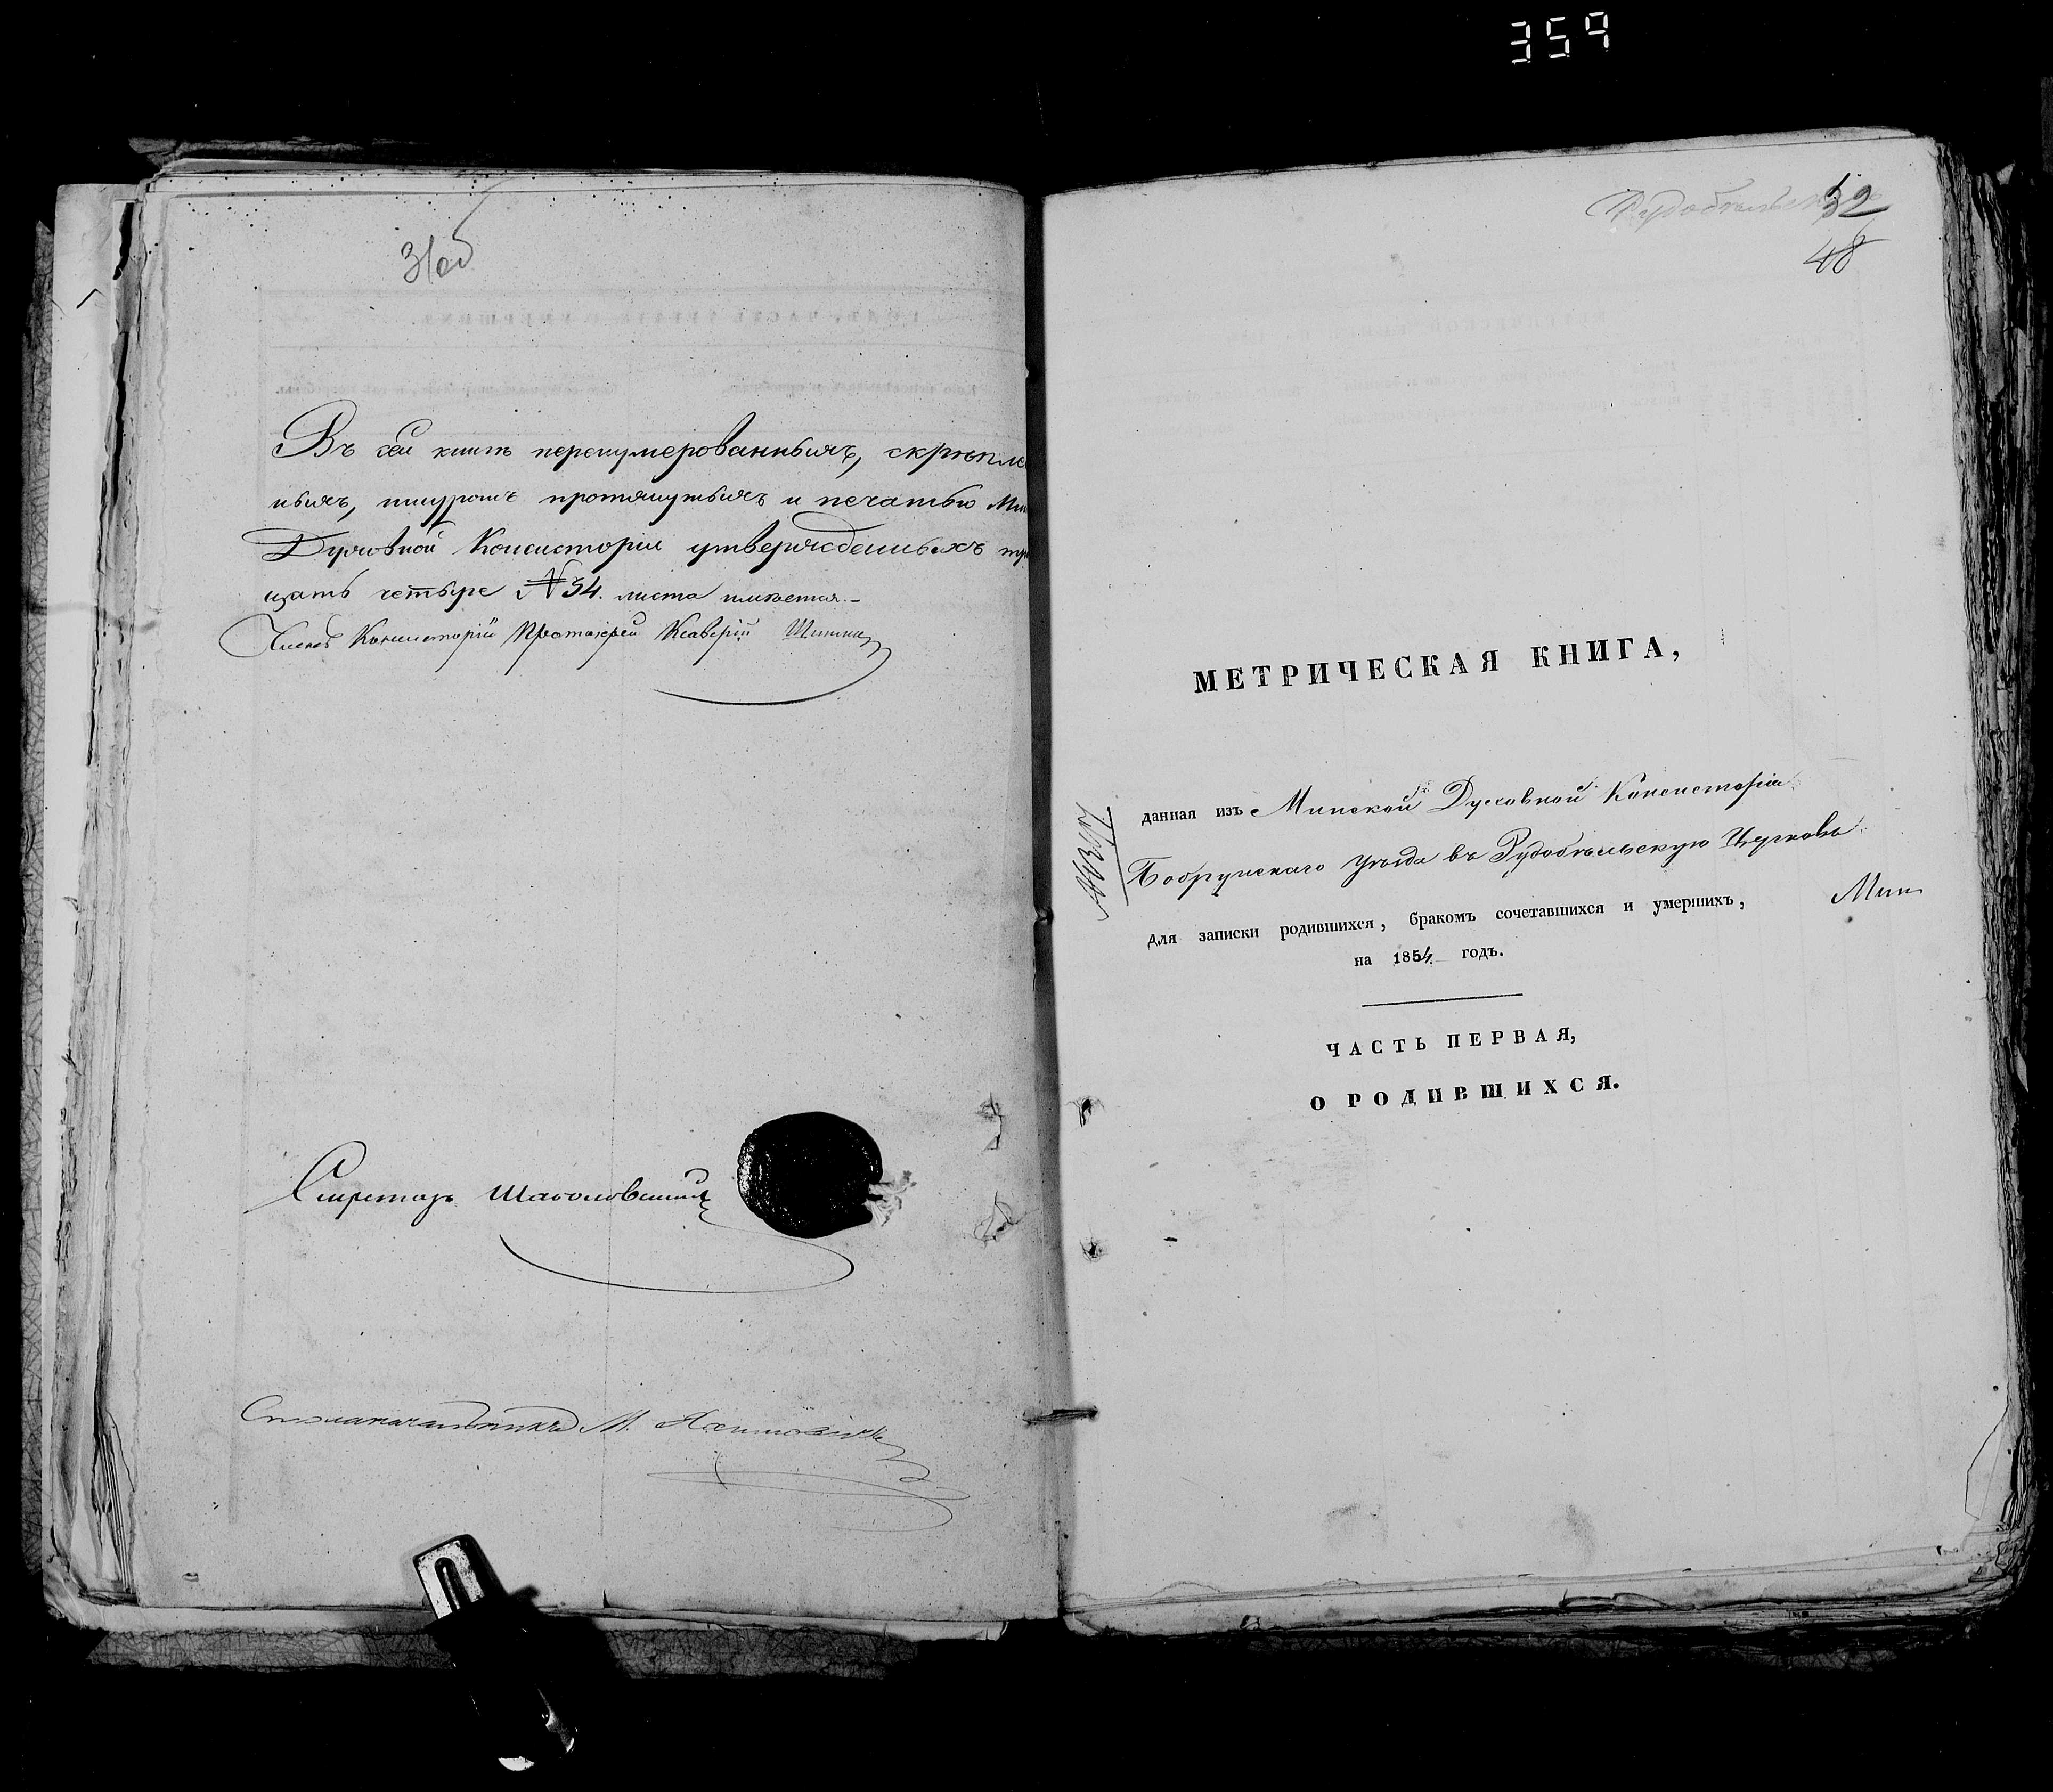 359
31об
Въ сей книгѣ перенумерованныхъ, скрѣпле
ныхъ, шнуромъ протянутыхъ и печатью Мин
Духовной Консисторіи утвержденныхъ тр
цать четыре № 34. листа имѣется.
Членъ Консисторіи Протоіерей Ксаверій
Секретарь
Столоначальникъ М.
Рудобѣльск
32
48
МЕТРИЧЕСКАЯ КНИГА,
данная изъ Минской Духовной Консисторіи
Бобруйскаго уѣзда въ Рудобѣльскую Церковь
для записки родившихся, бракомъ сочетавшихся и умершихъ, Мин
на 1854 годъ.
ЧАСТЬ ПЕРВАЯ,
О РОДИВШИХСЯ.